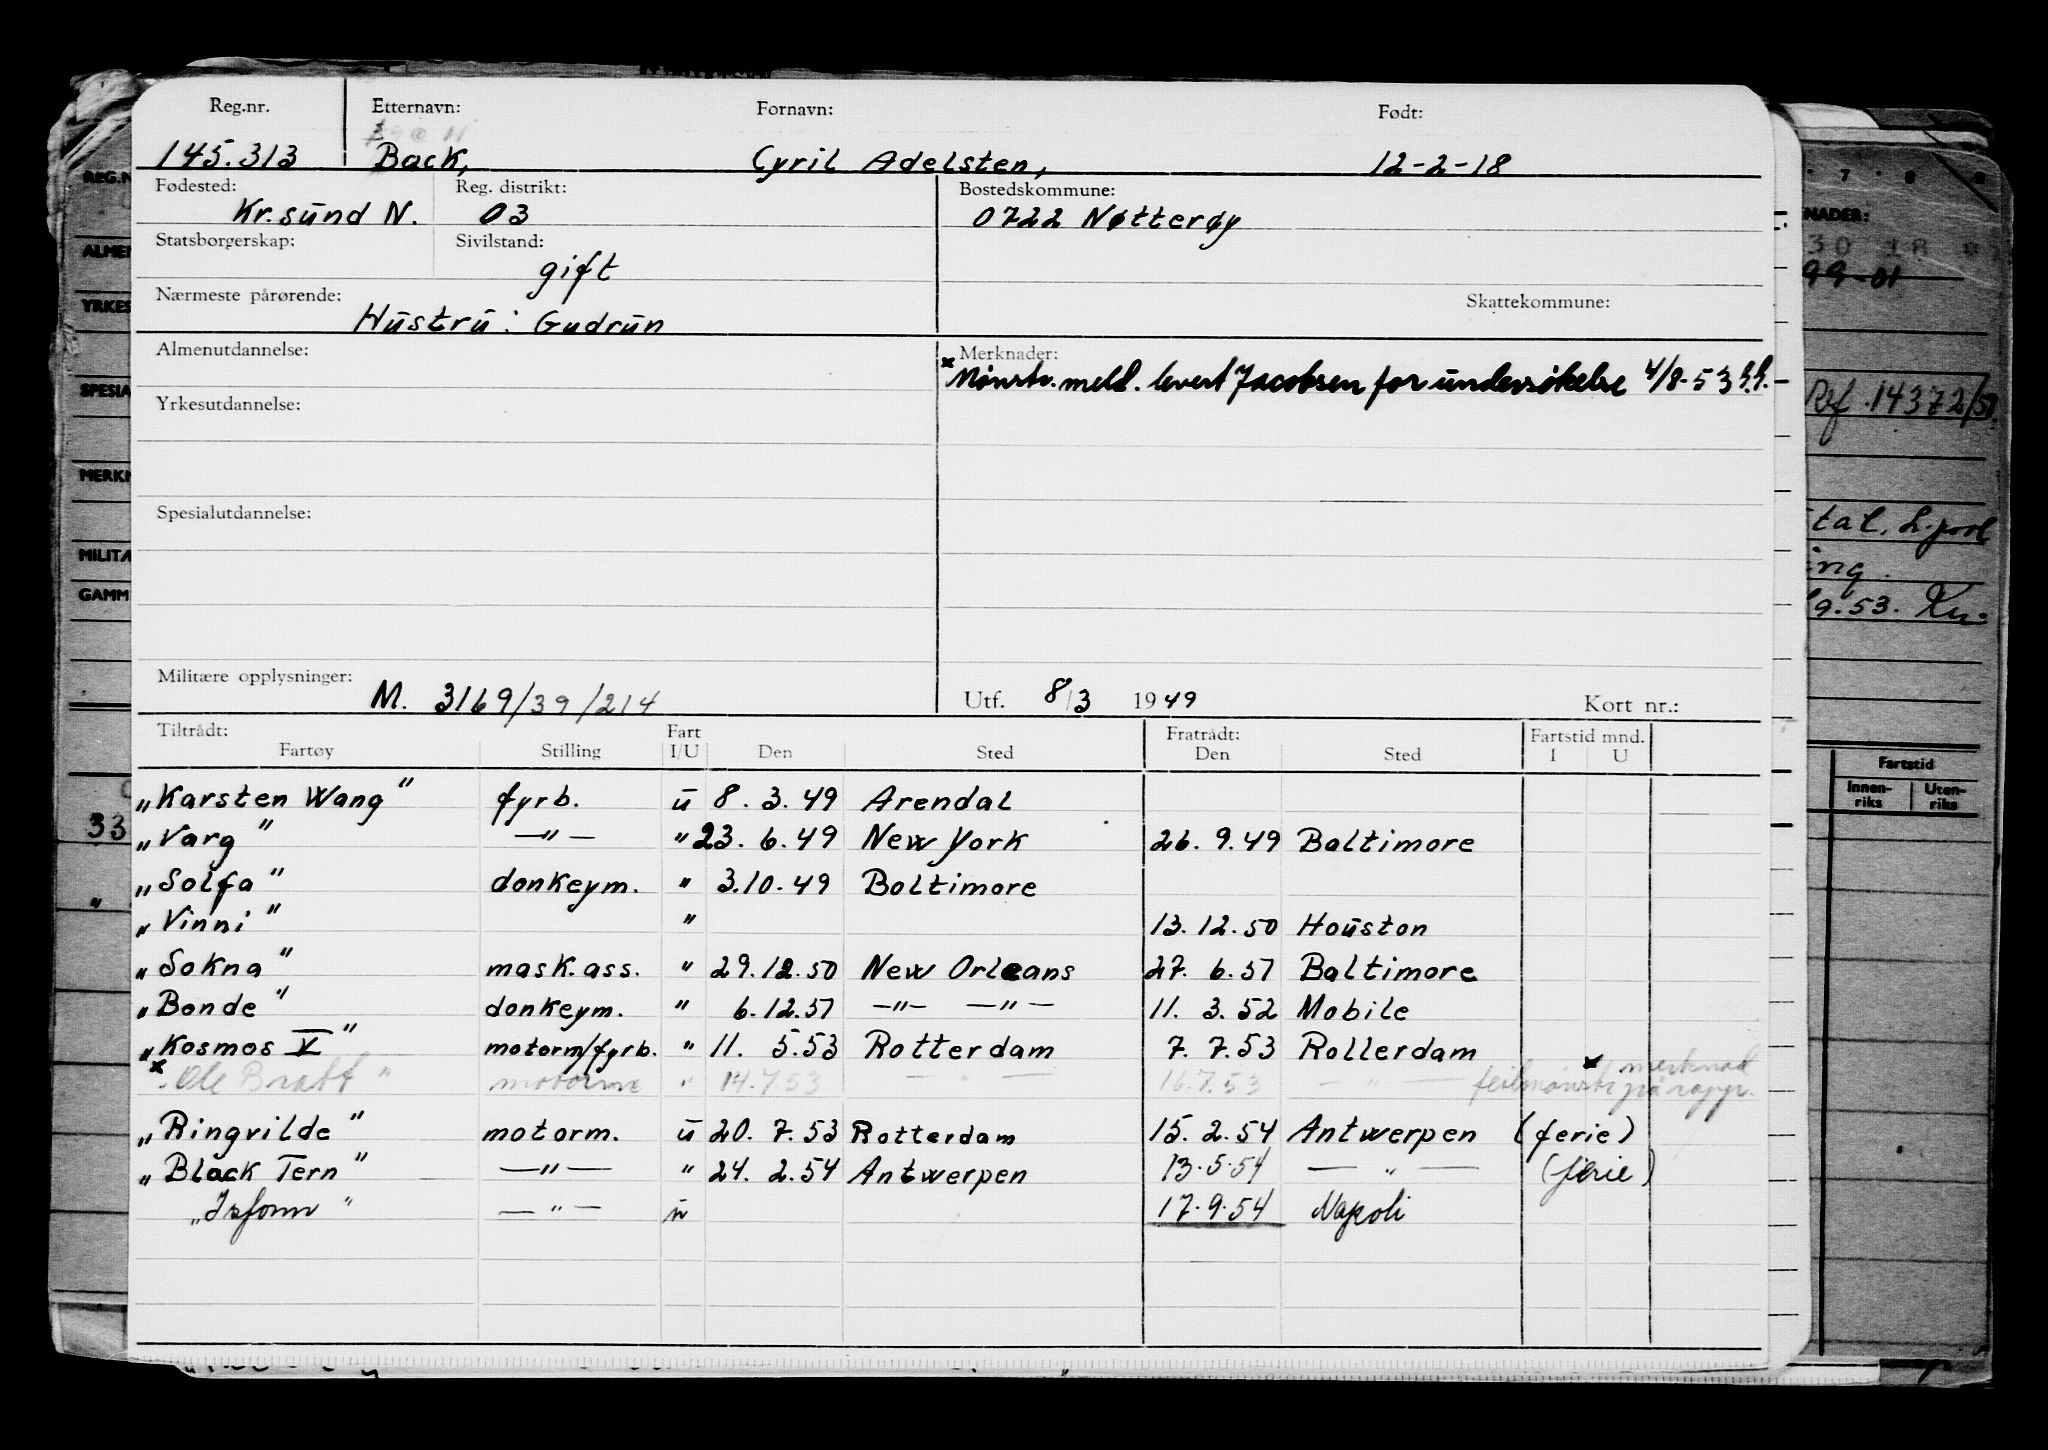 Reg.nr. Etternavn: Fornavn: Født:
145.313 Back, Cyril Adelsten, 12-2-18
Fødested: Reg. distrikt: Bostedskommune:
Kr.sund N. 03 0722 Nøtterøy
Statsborgerskap: Sivilstand:
gift
Nærmeste pårørende: Skattekommune:
Hustru: Gudrun
Almenutdannelse: Merknader:
x Mønstr. meld. levert Jacobsen for undersøkelse 4/8-53
Yrkesutdannelse:
Spesialutdannelse:
Militære opplysninger:
M. 3169/39/214 Utf. 8/3 1949 Kort nr.:
Tiltrådt: Fart Fratrådt: Fartstid mnd.
Fartøy Stilling I/U Den Sted Den Sted I U
„Karsten Wang" fyrb. u 8. 3. 49 Arendal
„Varg" —"— " 23. 6. 49 New York 26. 9. 49 Baltimore
„Solfa" donkeym. " 3.10.49 Boltimore
„Vinni" " 13. 12. 50 Houston
„Sokna" mask.ass. " 29.12.50 New Orleans 27. 6. 51 Baltimore
„Bonde" donkeym. " 6.12.51 —"— —"— 11. 3. 52 Mobile
„Kosmos V" motorm/fyrb. " 11. 5.53 Rotterdam 7. 7. 53 Rollerdam
x „Ole Bratt" motorm " 14.7.53 — " — 16.7.53 — " — feilmønstr x merknad på rappr.
„Ringvilde" motorm. u 20. 7. 53 Rotterdam 15. 2. 54 Antwerpen (ferie)
„Black Tern" —"— " 24. 2. 54 Antwerpen 13.5.54 — " — (ferie)
„Isfonn" —"— u 17.9.54 Napoli
REG.N
ALMEN
YRKES
SPESIA
MERKN
MILITÆ
GAMM
33
"
7 8 9
NADER:
30 18
99-01
Ref. 14372/51
tal. L.pool
ing.
9.53.
Fartstid
Innen-riks Uten-riks